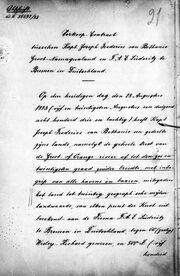 Abschrift
21
Verkoop Contract
tusschen Kapt Joseph Frederics van Bethanie
Groot-Namaqualand en F. A. E. Lüderitz te
Bremen in Duitschland.
Op den heuligen dag, den 25 Augustus
1883 (vijf en twintigsten Augustus een duizend
acht honderd drie en tachtig) heeft Kapt
Joseph Frederics van Bethanie en gedeelte
zijns lands, namelijk de geheele kust van
de Groot of Orange rivier af tot den zes en
twintigsten graad zuider breedte, met inbe-
grip van alle havens en baaien, mitsgaders
het land tot twintig geograf. sche mijlen
landwaards, van elken punt der kust uit
berekend aan de Firma F. A. E. Lüderitz
te Bremen in Duitschland, tegen 60 (zestig)
Wesley-Richard geweren en 500 £ (vijf
honderd